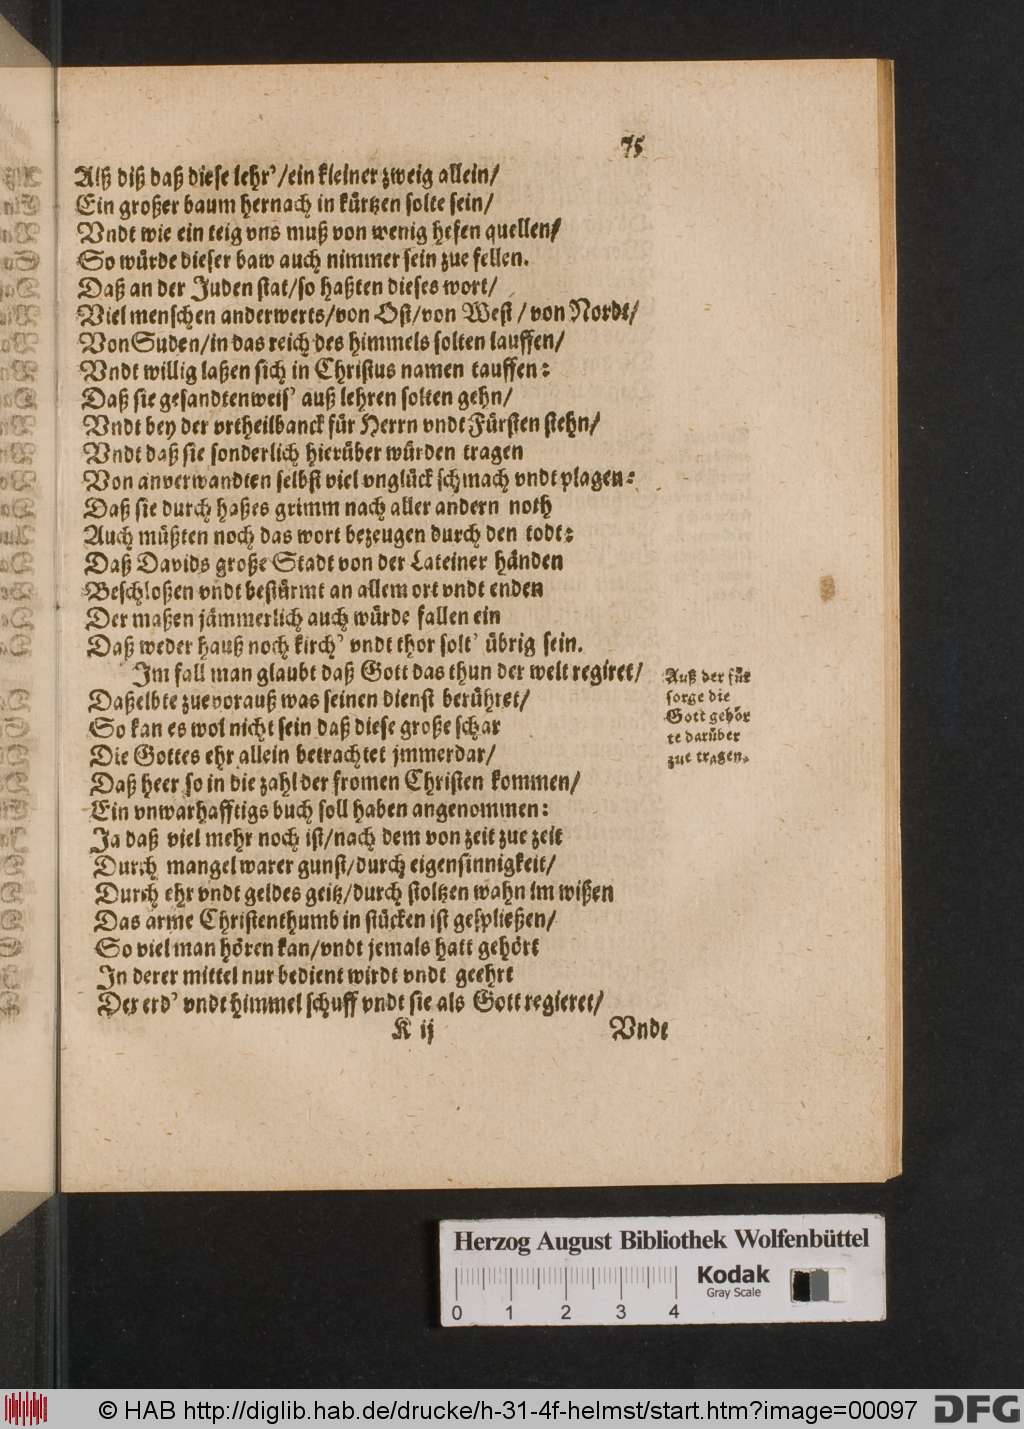 75
Alß diß daß diese lehr'/ein kleiner zweig allein/
Ein großer baum hernach in kürtzen solte sein/
Vndt wie ein teig vns muß von wenig hefen quellen/
So würde dieser baw auch nimmer sein zue fellen.
Daß an der Juden stat/so haßten dieses wort/
Viel menschen anderwerts/von Ost/von West/von Nordt/
Von Suden/in das reich des himmels solten lauffen/
Vndt willig laßen sich in Christus namen tauffen:
Daß sie gesandtenweis' auß lehren solten gehn/
Vndt bey der vrtheilbanck für Herrn vndt Fürsten stehn/
Vndt daß sie sonderlich hierüber würden tragen
Von anverwandten selbst viel vnglück schmach vndt plagen:
Daß sie durch haßes grimm nach aller andern noth
Auch müßten noch das wort bezeugen durch den todt:
Daß Davids große Stadt von der Lateiner händen
Beschloßen vndt bestürmt an allem ort vndt enden
Der maßen jämmerlich auch würde fallen ein
Daß weder hauß noch kirch' vndt thor solt' übrig sein.
Im fall man glaubt daß Gott das thun der welt regiret/
Daßelbte zuevorauß was seinen dienst berühret/
So kan es wol nicht sein daß diese große schar
Die Gottes ehr allein betrachtet jmmerdar/
Daß heer so in die zahl der fromen Christen kommen/
Ein vnwarhafftigs buch soll haben angenommen:
Ja daß viel mehr noch ist/nach dem von zeit zue zeit
Durch mangel warer gunst/durch eigensinnigkeit/
Durch ehr vndt geldes geitz/durch stoltzen wahn im wißen
Das arme Christenthumb in stücken ist gespließen/
So viel man hören kan/vndt jemals hatt gehört
In derer mittel nur bedient wirdt vndt geehrt
Der erd' vndt himmel schuff vndt sie als Gott regieret/
K ij
Vndt
Auß der für
sorge die
Gott gehör
te darüber
zue tragen.
Herzog August Bibliothek Wolfenbüttel
Kodak
Gray Scale
0 1 2 3 4
© HAB http://diglib.hab.de/drucke/h-31-4f-helmst/start.htm?image=00097
DFG